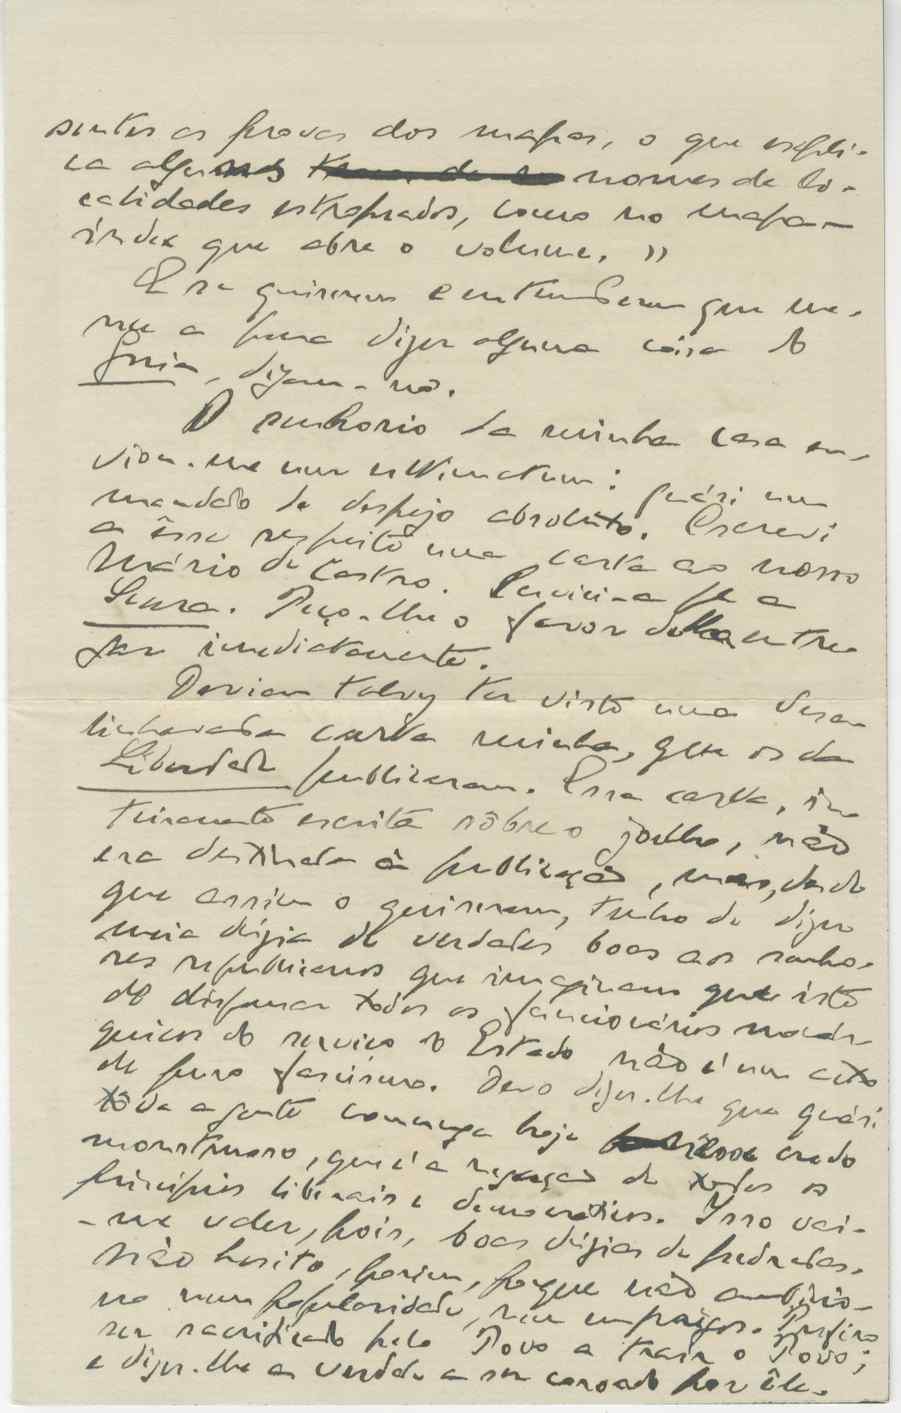 sentes as provas dos mapas, o que expli-
ca alguns nomes de lo-
calidades estropiados, como no mapa-
índex que abre o volume. »
E se quiserem e entenderem que me-
rece a pena dizer alguma coisa do
Guia, digam-no.
O senhorio da minha casa en-
viou-me um ultimatum: quási um
mandado de despejo absoluto. Escrevi
a êsse respeito uma carta ao nosso
Mário de Castro. Enviei-a para a
Seara. Peço-lhe o favor de lha entre-
gar imediatamente.
Deviam talvez ter visto uma desa-
linhavada carta minha, que os da
Liberdade publicaram. Essa carta, in-
teiramente escrita sôbre o joelho, não
era destinada à publicação, mas, desde
que assim o quiseram, tenho de dizer
meia dúzia de verdades boas aos senho-
res republicanos que imaginam que isto
de dispensar todos os funcionários monár-
quicos do serviço do Estado não é um acto
de puro fascismo. Devo dizer-lhe que quási
tôda a gente comunga hoje credo
monstruoso, que é a negação de todos os
princípios liberais e democráticos. Isso vai-
-me valer, pois, boas dúzias de pedradas.
Não hesito, porém, porque não ambicio-
no nem popularidade, nem empregos. Prefiro
ser sacrificado pelo Povo a trair o Povo;
e dizer-lhe a verdade a ser coroado por êle.